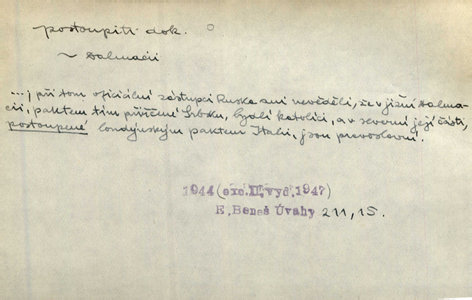 postoupiti dok.
~ Dalmacii
...; při tom oficiální zástupci Ruska ani nevěděli, že v jižní Dalma-
cii, paktem tím přiřčené Srbsku, bydlí katolíci, a v severní její části,
postoupené londýnským paktem Italii, jsou pravoslavní.
1944 (exc.II.vyd.1947)
E.Beneš Úvahy 211,15.